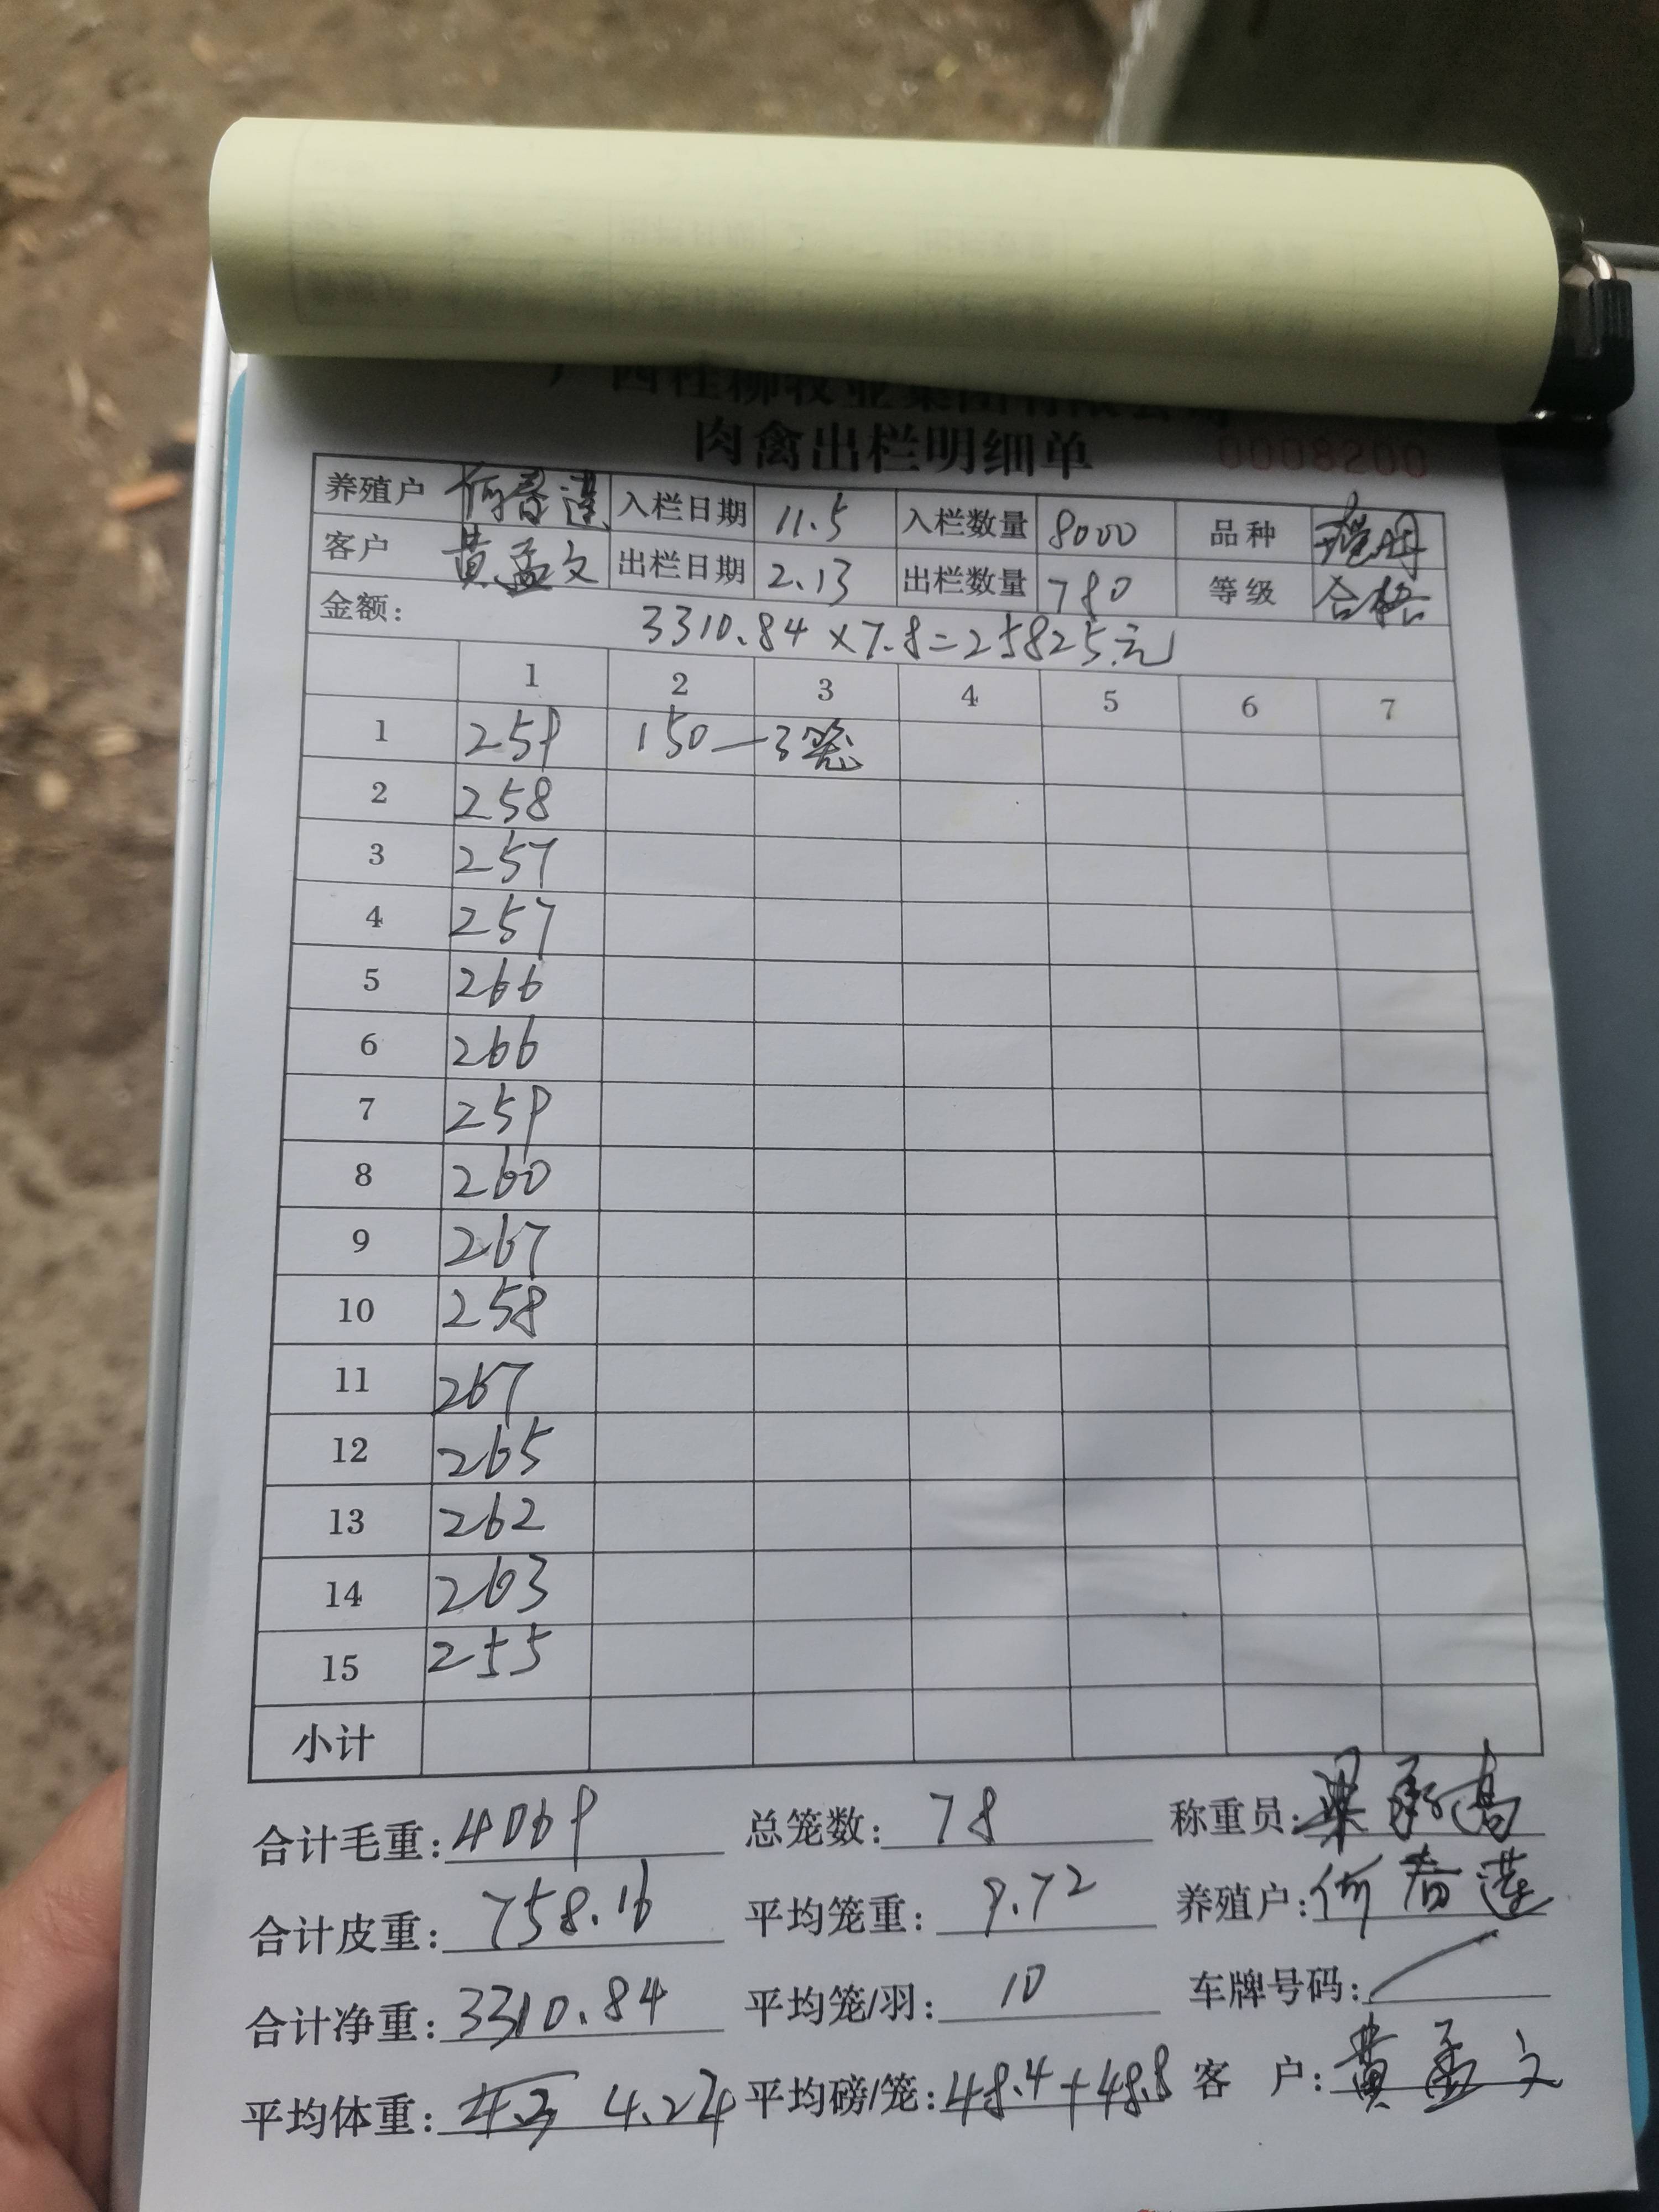 肉禽出栏明细单 0008200
养殖户 何春莲 入栏日期 11.5 入栏数量 8000 品种
客户 黄孟文 出栏日期 2.13 出栏数量 780 等级 合格
金额: 3310.84×7.8=25825元
1 2 3 4 5 6 7
1 259 150—3笼
2 258
3 257
4 257
5 266
6 266
7 259
8 260
9 267
10 258
11 267
12 265
13 262
14 263
15 255
小计
合计毛重: 4069 总笼数: 78 称重员: 梁
合计皮重: 758.16 平均笼重: 9.72 养殖户: 何春莲
合计净重: 3310.84 平均笼/羽: 10 车牌号码: /
平均体重: 4.24 平均磅/笼: 48.4+48.8 客 户: 黄孟文